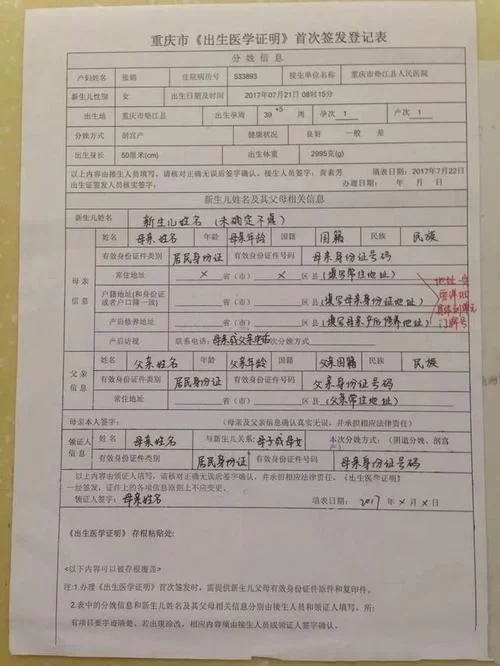 重庆市《出生医学证明》首次签发登记表
分娩信息
产妇姓名 张娟 住院病历号 533893 接生单位名称 重庆市垫江县人民医院
新生儿性别 女 出生日期及时间 2017年07月21日 08时15分
出生地 重庆市垫江县 出生孕周 39+5 周 孕次 1 产次 1
分娩方式 剖宫产 健康状况 良好 一般 差
出生身长 50厘米(cm) 出生体重 2995克(g)
以上内容由接生人员填写,请核对正确无误后签字确认。接生人员签字: 黄素芳 填表日期:2017年7月22日
出生证签发人员核实签字: 办理日期: 年 月 日
新生儿姓名及其父母相关信息
新生儿姓名 新生儿姓名(未确定不填)
母亲信息 姓名 母亲姓名 年龄 母亲年龄 国籍 国籍 民族 民族
有效身份证件类别 居民身份证 有效身份证件号码 母亲身份证号码
常住地址: X 省(市) X 区县(填写常住地址)
户籍地址(和身份证或者户口簿一致) 省(市) 区县(填写母亲身份证地址)
产后修养地址: 省(市) 区县(填写母亲产后修养地址)
地址一定要详细具体到单元门牌号
产后访视 联系电话:母亲或父亲电话 次分娩方式:
父亲信息 姓名 父亲姓名 年龄 父亲年龄 国籍 父亲国籍 民族 民族
有效身份证件类别 居民身份证 有效身份证件号码 父亲身份证号码
常住地址: 省(市) 区县(父亲常住地址)
母亲本人签字: (母亲及父亲信息确认真实无误,并承担相应法律责任)
领证人信息 姓名 母亲姓名 与新生儿关系:母子或母女 本次分娩方式:(阴道分娩、剖宫产)
有效身份证件类别 居民身份证 有效身份证件号码 母亲身份证号码
以上内容由领证人填写,请核对正确无误后签字确认,并承担相应法律责任。《出生医学证明》
一经签发,证件上的各项信息原则上不应变更。
领证人签字:母亲姓名 填表日期: 2017 年 X 月 X 日
《出生医学证明》存根粘贴处:
<以下内容可以被存根覆盖>
注:1.办理《出生医学证明》首次签发时,需提供新生儿父母有效身份证件原件和复印件。
2.表中的分娩信息和新生儿姓名及其父母相关信息分别由接生人员和领证人填写,所:
有项目要字迹清楚。若出现涂改,相应内容须由接生人员或领证人签字确认。